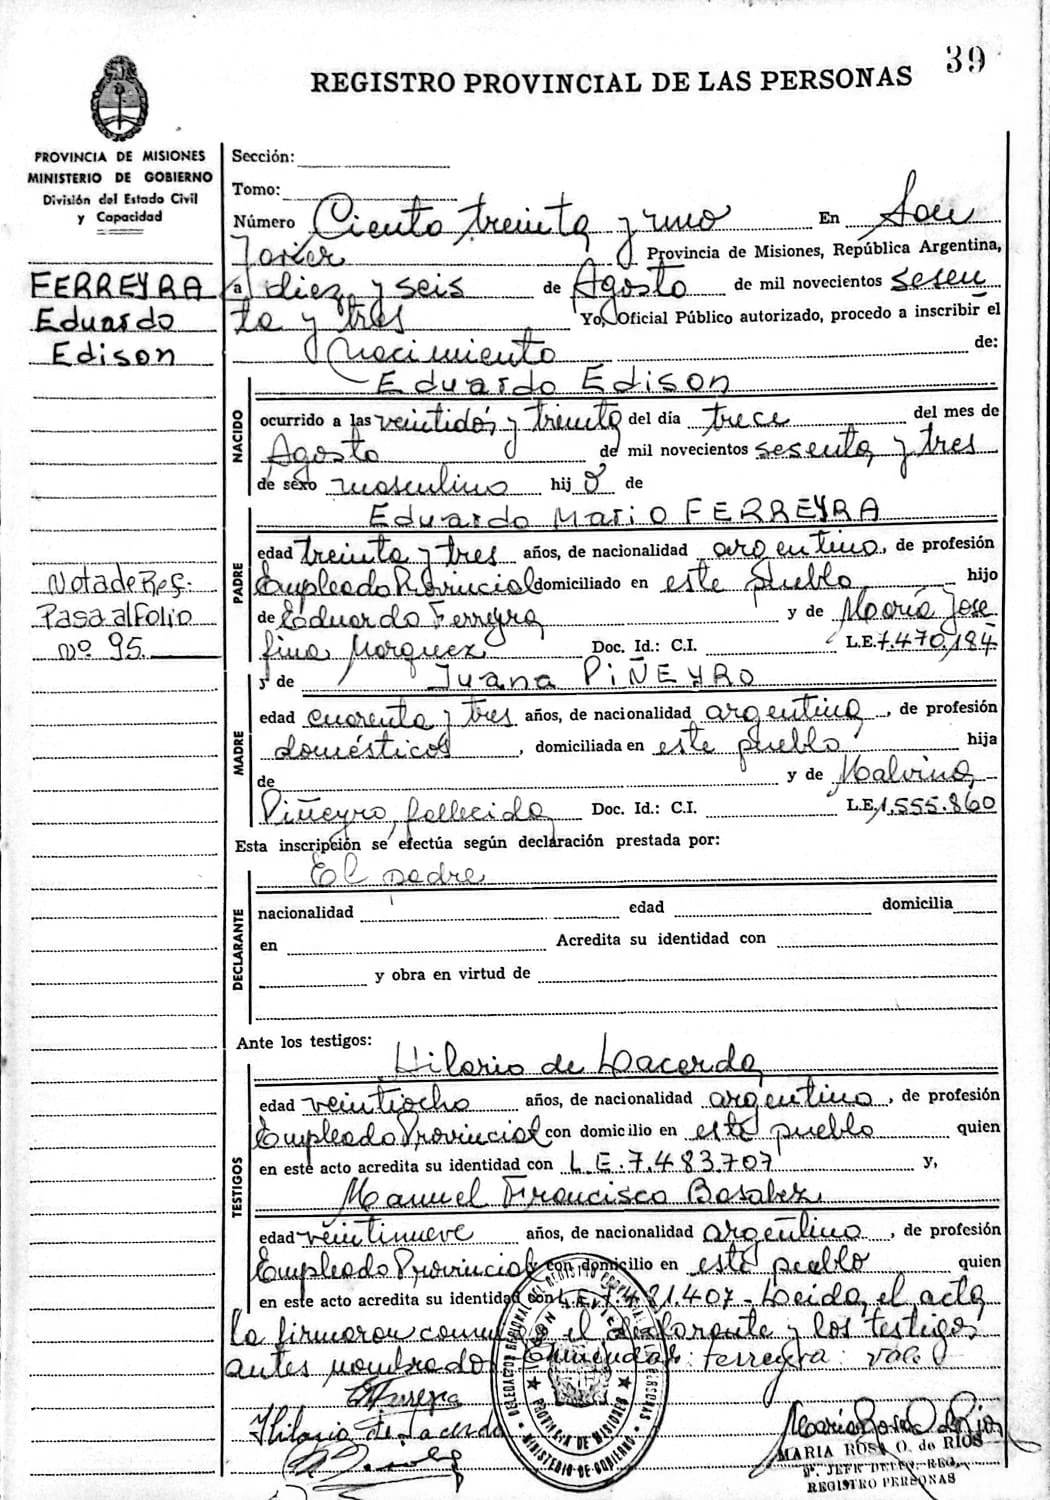 39
REGISTRO PROVINCIAL DE LAS PERSONAS
PROVINCIA DE MISIONES
MINISTERIO DE GOBIERNO
División del Estado Civil
y Capacidad
FERREYRA
Eduardo
Edison
Nota de Ref.
Pasa al Folio
Nº 95.
Sección:
Tomo:
Número Ciento treinta y uno En San
Javier Provincia de Misiones, República Argentina,
a diez y seis de Agosto de mil novecientos sesen
ta y tres Yo, Oficial Público autorizado, procedo a inscribir el
Nacimiento de:
Eduardo Edison
NACIDO
ocurrido a las veintidós y treinta del día trece del mes de
Agosto de mil novecientos sesenta y tres
de sexo masculino hijo de
Eduardo Mario FERREYRA
PADRE
edad treinta y tres años, de nacionalidad argentina, de profesión
Empleado Provincial domiciliado en este pueblo hijo
de Eduardo Ferreyra y de María Jose
fina Marquez Doc. Id.: C.I. L.E. 7.470.184
y de Juana PIÑEYRO
MADRE
edad cuarenta y tres años, de nacionalidad argentina, de profesión
domésticos, domiciliada en este pueblo hija
de y de Malvina
Piñeyro, fallecida Doc. Id.: C.I. L.E. 1.555.860
Esta inscripción se efectúa según declaración prestada por:
El padre
DECLARANTE
nacionalidad edad domicilia
en Acredita su identidad con
y obra en virtud de
Ante los testigos:
Hilario de Lacerda
TESTIGOS
edad veintiocho años, de nacionalidad argentina, de profesión
Empleado Provincial con domicilio en este pueblo quien
en este acto acredita su identidad con L.E. 7.483.707 y,
Manuel Francisco Basabez
edad veintinueve años, de nacionalidad argentino, de profesión
Empleado Provincial con domicilio en este pueblo quien
en este acto acredita su identidad con L.E. Leida el acta
la firmaron conmigo el declarante y los testigos
antes nombrados. Enmendado: Ferreyra: Vale
Hilario de Lacerda
PROVINCIA DE MISIONES
MINISTERIO DE GOBIERNO
MARIA ROSA O. de RIOS
REGISTRO PERSONAS